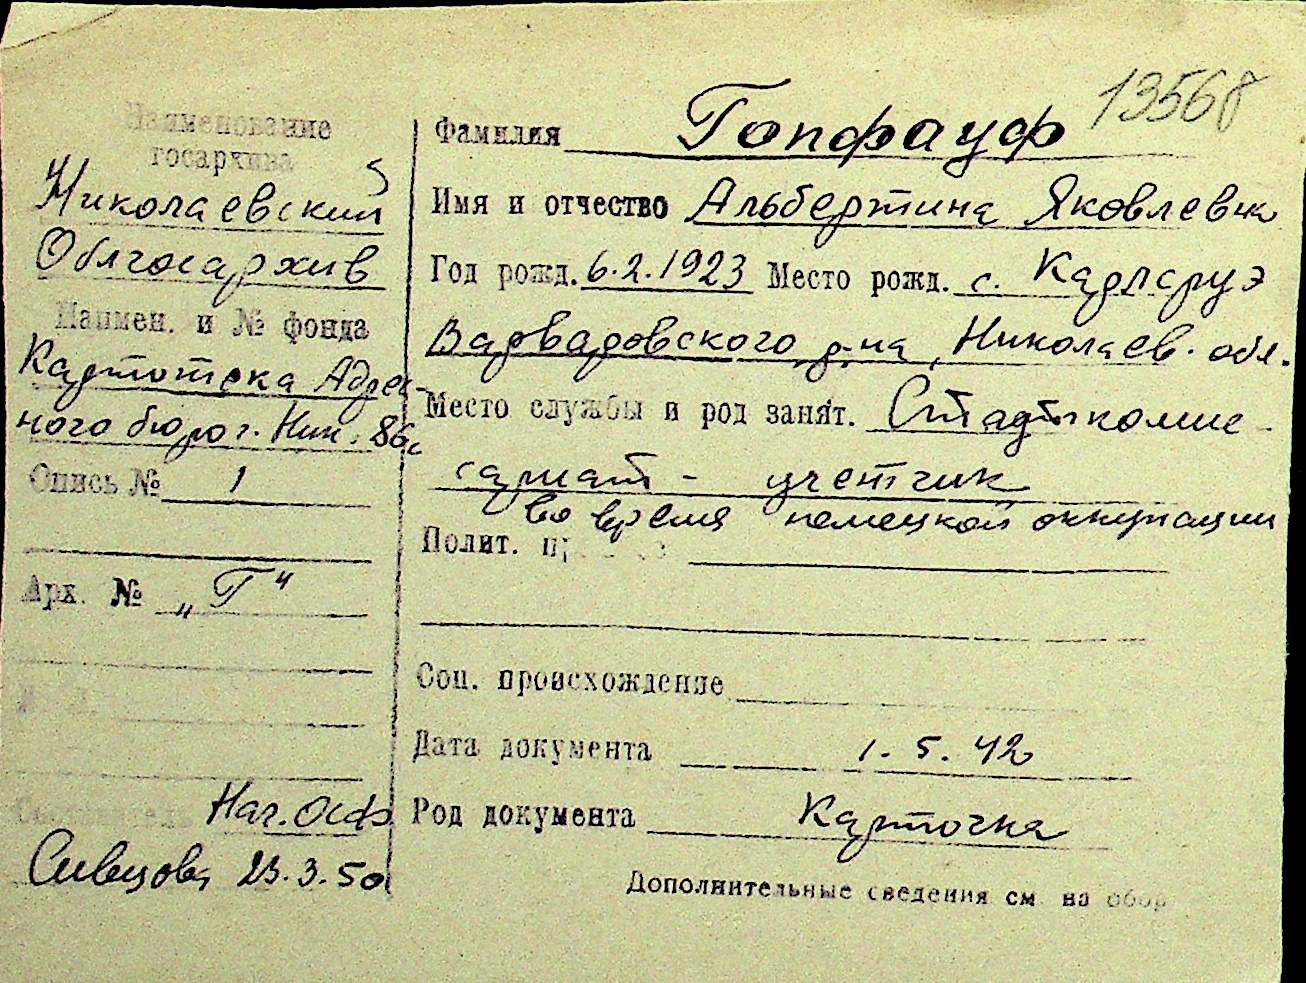 13568
Наименование
госархива
Николаевский
Облгосархив
Наимен. и № фонда
Картотека Адрес-
ного бюро г. Ник.
Опись № 1
Арх. № „Г“
Нач. ОСФ
Сивцова 23.3.50
Фамилия Гопфауф
Имя и отчество Альбертина Яковлевна
Год рожд. 6.2.1923 Место рожд. с. Карлсруэ
Варваровского р-на, Николаев. обл.
Место службы и род занят. Штадткомис-
сариат - учетчик
во время немецкой оккупации
Полит.
Соц. происхождение
Дата документа 1.5.42
Род документа Карточка
Дополнительные сведения см на обор